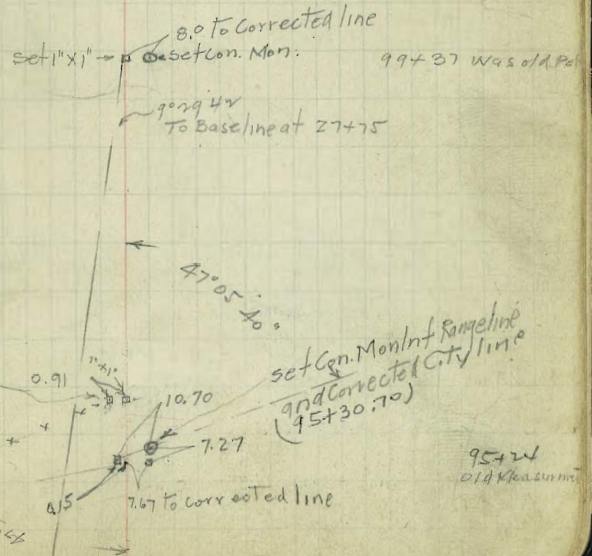 8.0 to Corrected line
set 1"x1" set Con. Mon.
99+37 Was old
9°29 42
To Baseline at 27+75
47° 05' 40"
set Con. Mon Int Rangeline
and Corrected City line
(95+30.70)
0.91
1"x1"
10.70
7.27
95+24
old Measurm
7.67 to corrected line